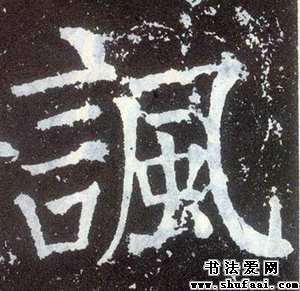 諷
书法爱网
www.shufaai.com